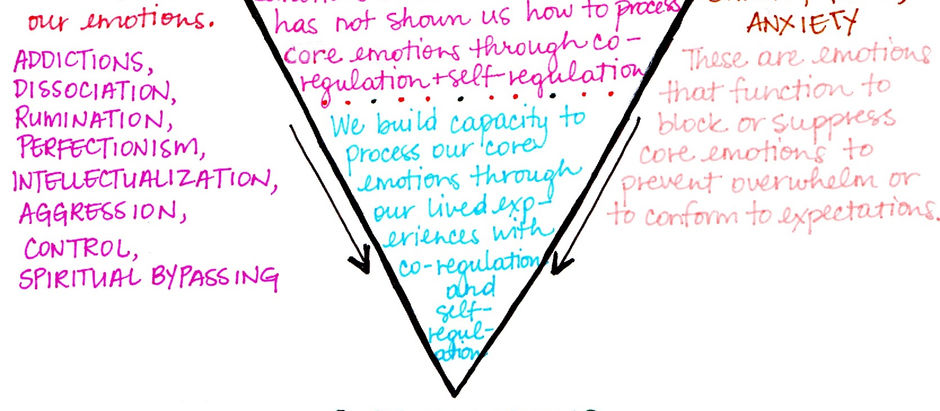 our emotions.
ADDICTIONS,
DISSOCIATION,
RUMINATION,
PERFECTIONISM,
INTELLECTUALIZATION,
AGGRESSION,
CONTROL,
SPIRITUAL BYPASSING
has not shown us how to process
core emotions through co-
regulation + self-regulation
We build capacity to
process our core
emotions through
our lived exp-
eriences with
co-regulation
and
self-
regul-
ation
ANXIETY
These are emotions
that function to
block or suppress
core emotions to
prevent overwhelm or
to conform to expectations.